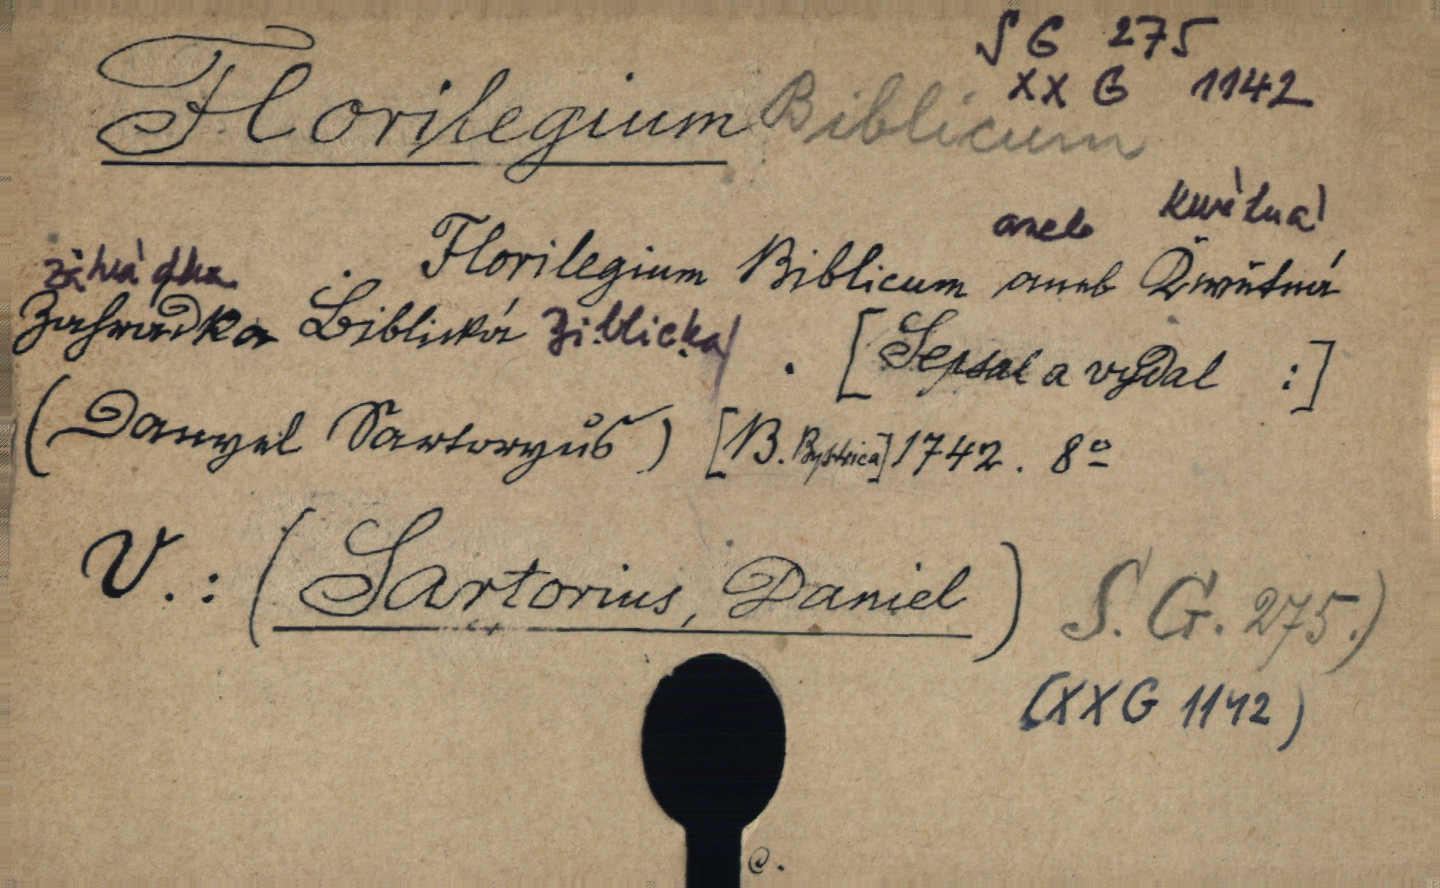 S G 275
XX G 1142
Florilegium Biblicum
aneb kwětná
záhrádka Florilegium Biblicum aneb Kwětná
Zahradka Biblická Biblická . [Sepsal a vydal :]
(Danyel Sartoryus) [B. Bystrica] 1742. 8º
V.: (Sartorius, Daniel) S. G. 275.)
(XXG 1142)
C.